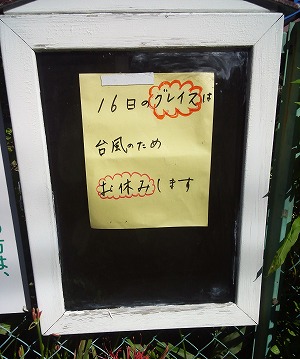 16日のグレイスは
台風のため
お休みします
の方は、